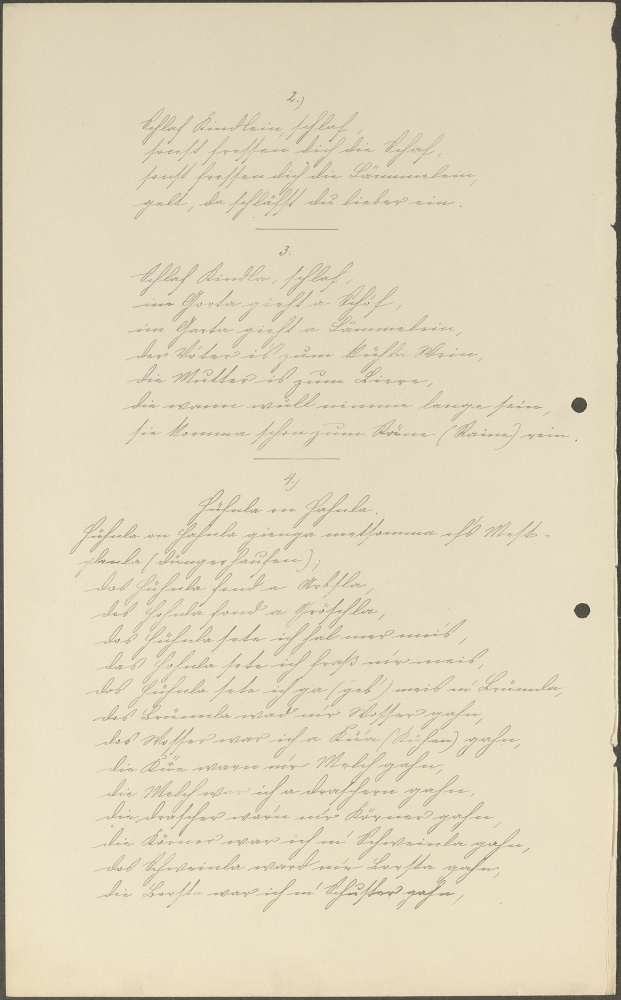 2.)
Schlaf Kindlein, schlaf,
sonst fressen dich die Schaf,
sonst fressen dich die Lämmelein,
gelt, da schläfst du lieber ein.
3.
Schlaf Kindla, schlaf,
im Gorta gieht a Schöf,
im Garta gieht a Lämmelein,
der Voter is zum kühla Wein,
die Mutter is zum Biere,
die warn wull nimme lange sein,
sie komma schon zum Räne (Raine) rein.
4.)
Hühnla on Hahnla.
Hühnla on Hahnla gienga metsomma ufs Mest-
flanla (Düngerhaufen);
dos Hühnla fond a Arbsla,
dos Hohnla fond a Gröschla,
dos Hühnla sote ich hal mer meis,
das Hohnla sote ich fraß mir meis,
dos Hühnla sote ich ga (geb') meis m' Brünnla,
dos Brünnla ward mir Wosser gahn,
dos Wosser war ich a Küa (Kühen) gahn,
die Küe warn mir Melch gahn,
die Melch war ich a Draschern gahn,
die Drascher warn mir Körner gahn,
die Körner war ich m' Schweinla gahn,
dos Schweinla ward mir Borsta gahn,
die Borsta war ich m' Schuster gahn,